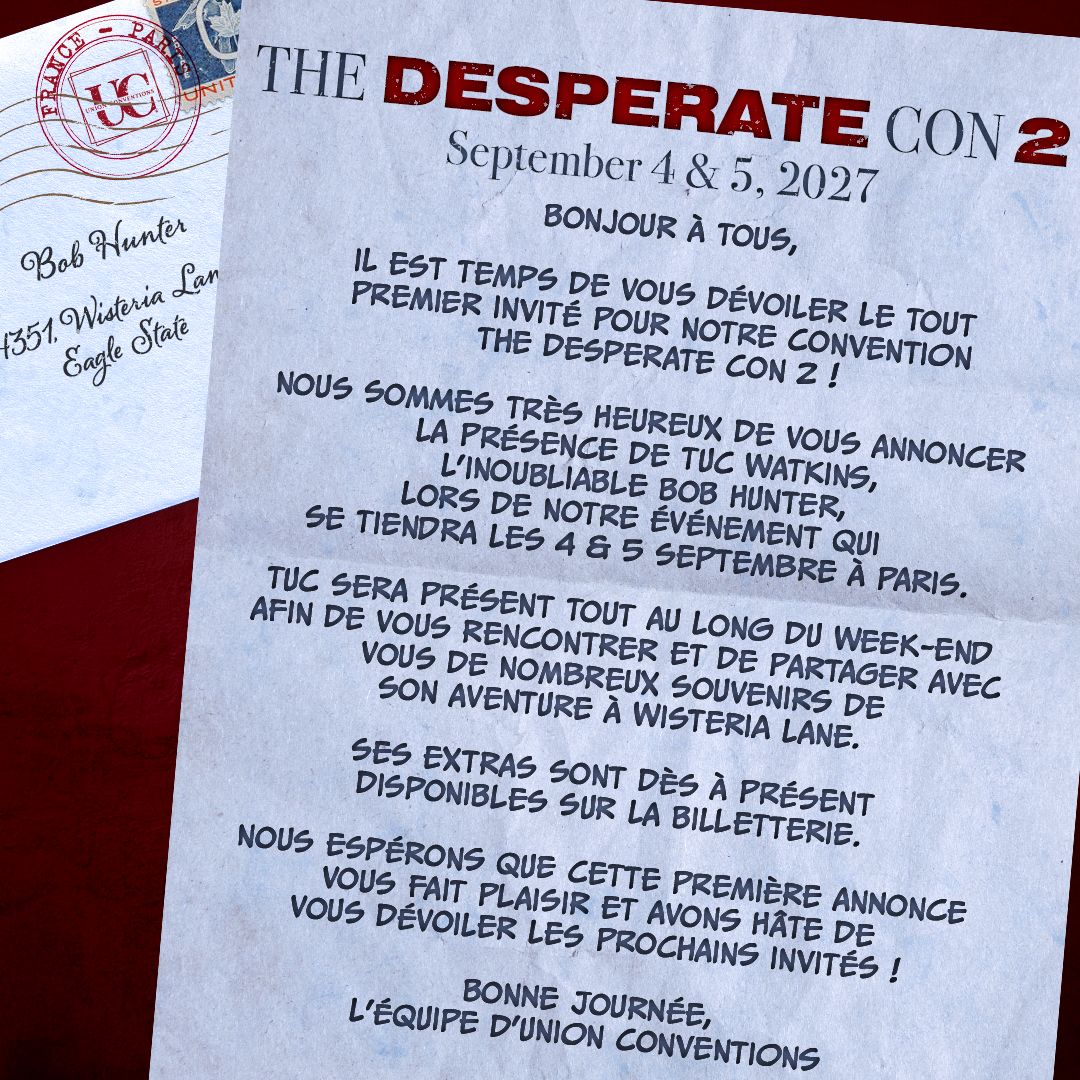 FRANCE - PARIS
UC
UNION CONVENTIONS
UNIT
Bob Hunter
4351, Wisteria Lan
Eagle State
THE DESPERATE CON 2
September 4 & 5, 2027
BONJOUR À TOUS,
IL EST TEMPS DE VOUS DÉVOILER LE TOUT
PREMIER INVITÉ POUR NOTRE CONVENTION
THE DESPERATE CON 2 !
NOUS SOMMES TRÈS HEUREUX DE VOUS ANNONCER
LA PRÉSENCE DE TUC WATKINS,
L'INOUBLIABLE BOB HUNTER,
LORS DE NOTRE ÉVÉNEMENT QUI
SE TIENDRA LES 4 & 5 SEPTEMBRE À PARIS.
TUC SERA PRÉSENT TOUT AU LONG DU WEEK-END
AFIN DE VOUS RENCONTRER ET DE PARTAGER AVEC
VOUS DE NOMBREUX SOUVENIRS DE
SON AVENTURE À WISTERIA LANE.
SES EXTRAS SONT DÈS À PRÉSENT
DISPONIBLES SUR LA BILLETTERIE.
NOUS ESPÉRONS QUE CETTE PREMIÈRE ANNONCE
VOUS FAIT PLAISIR ET AVONS HÂTE DE
VOUS DÉVOILER LES PROCHAINS INVITÉS !
BONNE JOURNÉE,
L'ÉQUIPE D'UNION CONVENTIONS